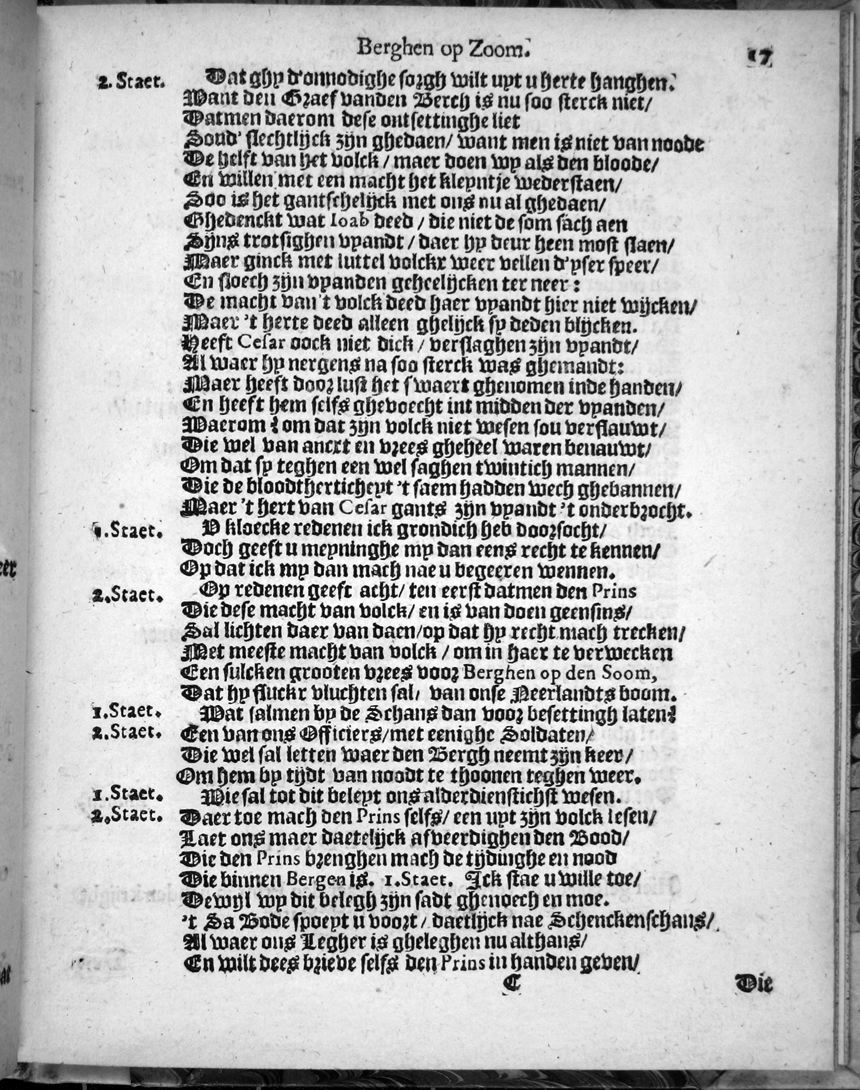 Berghen op Zoom.
17
2. Staet. Dat ghy d'onnodighe sorgh wilt uyt u herte hanghen.
Want den Graef vanden Berch is nu soo sterck niet/
Datmen daerom dese ontsettinghe liet
Soud' slechtlijck zijn ghedaen/ want men is niet van noode
De helft van het volck / maer doen wy als den bloode/
En willen met een macht het kleyntje wederstaen/
Soo is het gantschelijck met ons nu al ghedaen/
Ghedenckt wat Ioab deed / die niet de som sach aen
Sijns trotsighen vyandt / daer hy deur heen most slaen/
Maer ginck met luttel volckx weer vellen d'yser speer/
En sloech zijn vyanden geheelijcken ter neer :
De macht van't volck deed haer vyandt hier niet wijcken/
Maer 't herte deed alleen ghelijck sy deden blijcken.
Heeft Cesar oock niet dick / verslaghen zijn vyandt/
Al waer hy nergens na soo sterck was ghemandt:
Maer heeft door lust het swaert ghenomen inde handen/
En heeft hem selfs ghevoecht int midden der vyanden/
Waerom ? om dat zijn volck niet wesen sou verflauwt/
Die wel van ancxt en vrees gheheel waren benauwt/
Om dat sy teghen een wel saghen twintich mannen/
Die de bloodtherticheyt 't saem hadden wech ghebannen/
Maer 't hert van Cesar gants zijn vyandt 't onderbrocht.
1. Staet. V kloecke redenen ick grondich heb doorsocht/
Doch geeft u meyninghe my dan eens recht te kennen/
Op dat ick my dan mach nae u begeeren wennen.
2. Staet. Op redenen geeft acht/ ten eerst datmen den Prins
Die dese macht van volck/ en is van doen geensins/
Sal lichten daer van daen/op dat hy recht mach trecken/
Met meeste macht van volck / om in haer te verwecken
Een sulcken grooten vrees voor Berghen op den Soom,
Dat hy fluckx vluchten sal/ van onse Neerlandts boom.
1. Staet. Wat salmen by de Schans dan voor besettingh laten?
2. Staet. Een van ons Officiers/met eenighe Soldaten/
Die wel sal letten waer den Bergh neemt zijn keer/
Om hem by tijdt van noodt te thoonen teghen weer.
1. Staet. Wie sal tot dit beleyt ons alderdienstichst wesen.
2. Staet. Daer toe mach den Prins selfs/ een uyt zijn volck lesen/
Laet ons maer daetelijck afveerdighen den Bood/
Die den Prins brenghen mach de tijdinghe en nood
Die binnen Bergen is. 1. Staet. Ick stae u wille toe/
Dewijl wy dit belegh zijn sadt ghenoech en moe.
't Sa Bode spoeyt u voort / daetlijck nae Schenckenschans/
Al waer ons Legher is gheleghen nu althans/
En wilt dees brieve selfs den Prins in handen geven/
C Die